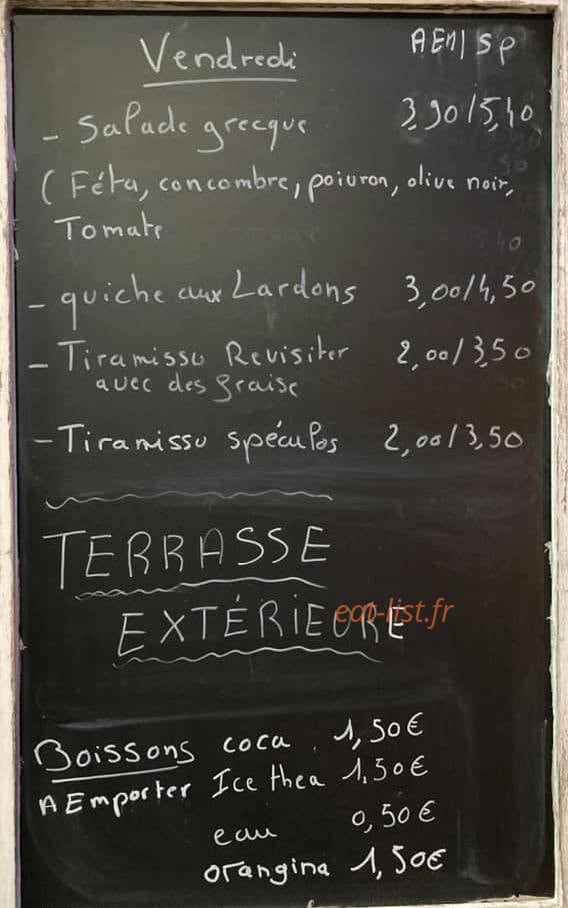 Vendredi AEM/SP
- Salade grecque 3,90/5,40
(Féta, concombre, poivron, olive noir,
Tomate
- quiche aux Lardons 3,00/4,50
- Tiramissu Revisiter 2,00/3,50
avec des fraise
- Tiramissu spéculos 2,00/3,50
TERRASSE
EXTÉRIEURE
eat-list.fr
Boissons coca 1,50€
A Emporter Ice thea 1,50€
eau 0,50€
orangina 1,50€